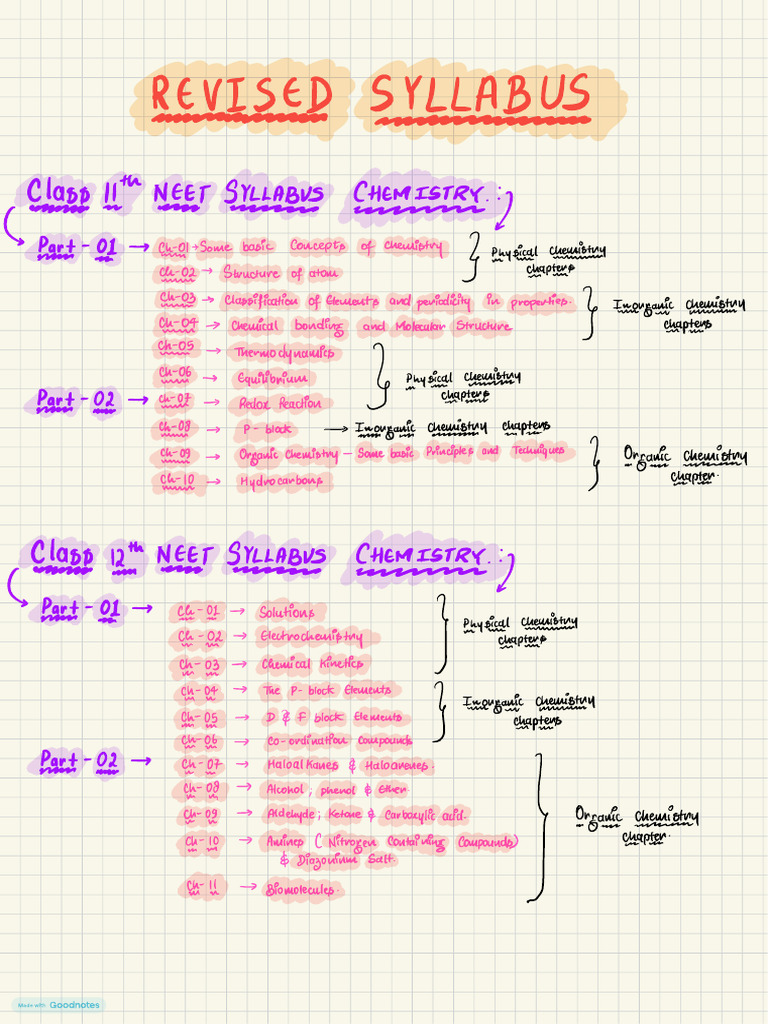 REVISED SYLLABUS
Class 11th NEET SYLLABUS CHEMISTRY :
Part - 01 → Ch-01 → Some basic Concepts of chemistry
Physical chemistry chapters
Ch-02 → Structure of atom
Ch-03 → Classification of Elements and periodicity in properties.
Inorganic Chemistry chapters
Ch-04 → Chemical bonding and Molecular Structure
Ch-05 → Thermodynamics
Ch-06 → Equilibrium
Physical Chemistry chapters
Part - 02 → Ch-07 → Redox Reaction
Ch-08 → P-block → Inorganic Chemistry chapters
Ch-09 → Organic Chemistry - Some basic Principles and Techniques
Organic Chemistry chapter.
Ch-10 → Hydrocarbons
Class 12th NEET SYLLABUS CHEMISTRY. :
Part - 01 → Ch-01 → Solutions
Physical chemistry chapters
Ch-02 → Electrochemistry
Ch-03 → Chemical kinetics
Ch-04 → The P-block Elements
Inorganic Chemistry chapters
Ch-05 → D & F block Elements
Ch-06 → Co-ordination Compounds
Part - 02 → Ch-07 → Haloalkanes & Haloarenes.
Ch-08 → Alcohol; phenol & Ether.
Ch-09 → Aldehyde; Ketone & Carboxylic acid.
Organic Chemistry chapter.
Ch-10 → Amines ( Nitrogen Containing Compounds)
& Diazonium Salt.
Ch-11 → Biomolecules.
Made with Goodnotes